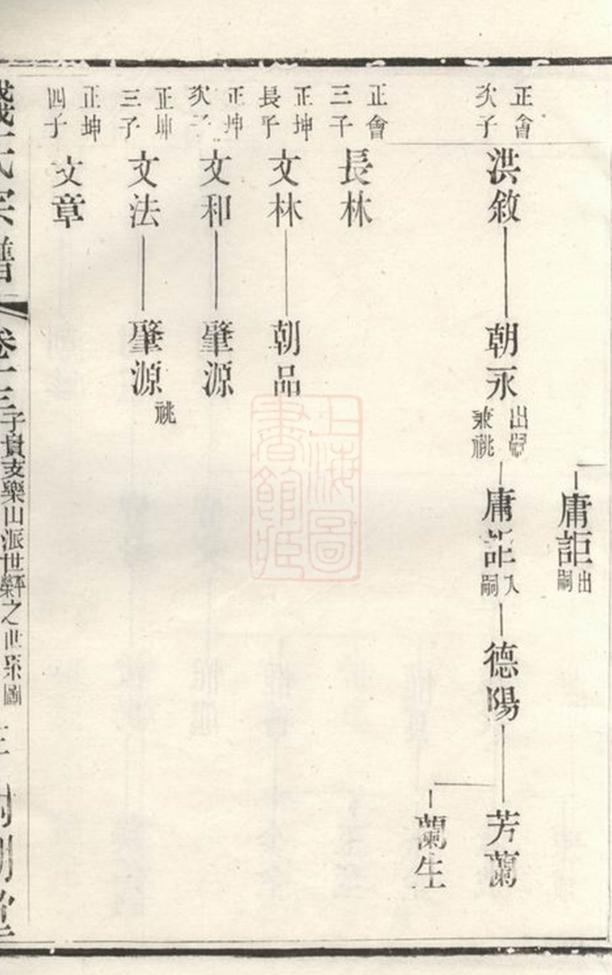 庸詎
出嗣
正會
次子
洪敘
朝永
出嗣
兼祧
庸詎
入嗣
德陽
芳蘭
蘭生
正會
三子
長林
正坤
長子
文林
朝品
正坤
次子
文和
肇源
正坤
三子
文法
肇源
祧
正坤
四子
文章
氏宗譜
卷十三
子貞支樂山派世
之世系圖
上海圖書館藏